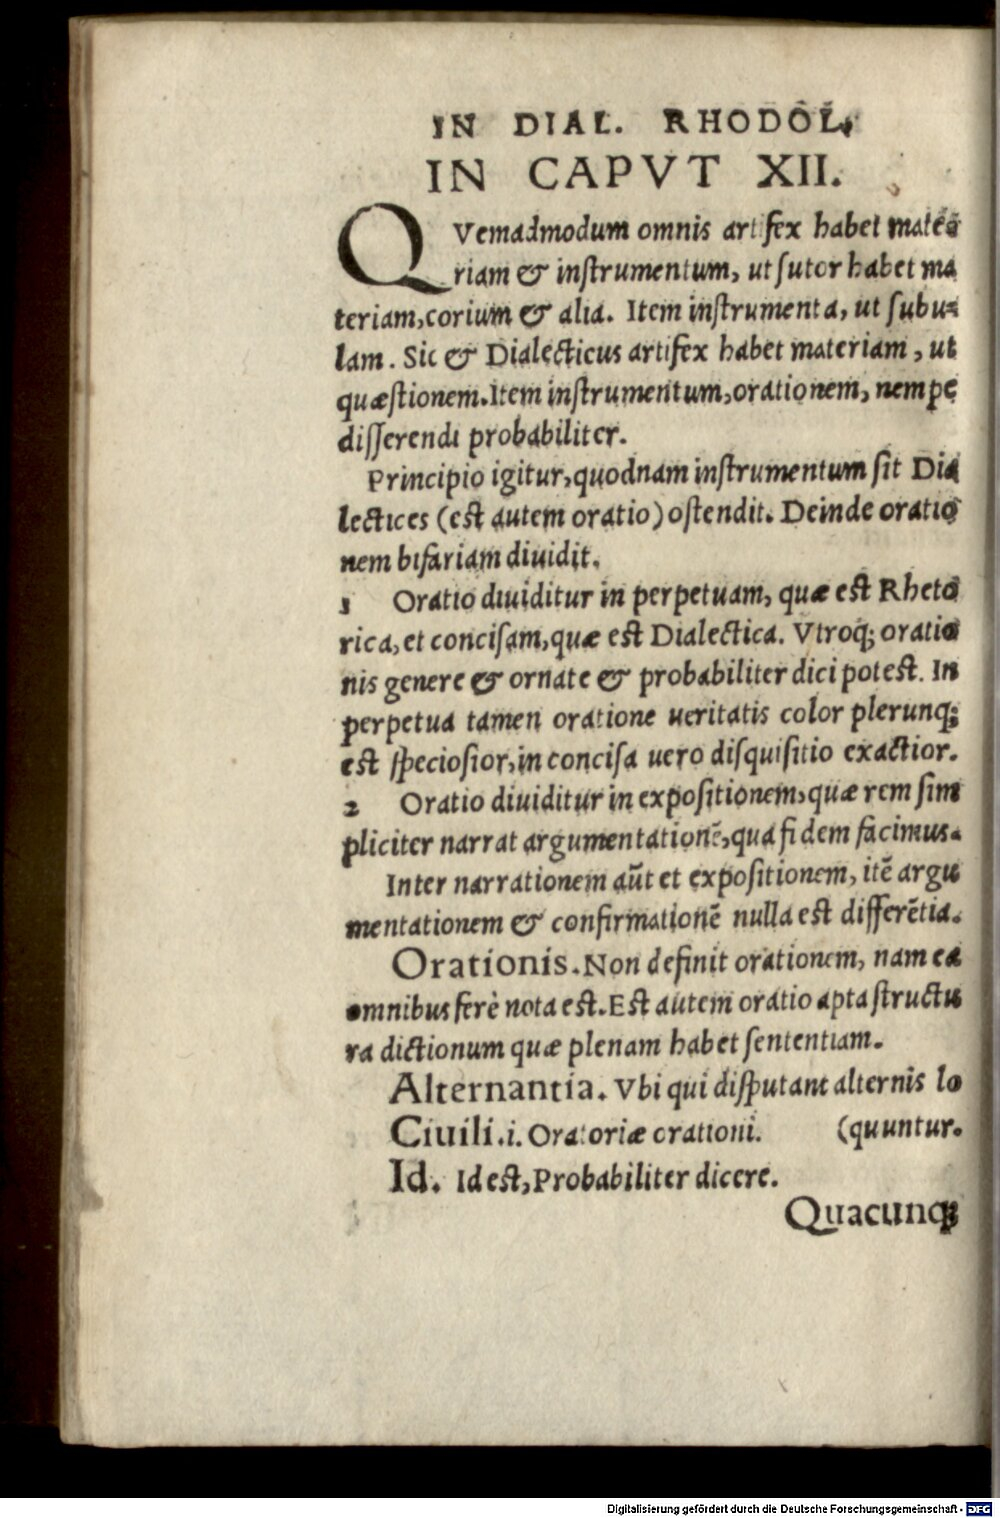 IN DIAL. RHODOL.
IN CAPVT XII.
QVemadmodum omnis artifex habet mate
riam & instrumentum, ut sutor habet ma
teriam, corium & alia. Item instrumenta, ut subu-
lam. Sic & Dialecticus artifex habet materiam, ut
quæstionem. Item instrumentum, orationem, nempe
disserendi probabiliter.
Principio igitur, quodnam instrumentum sit Dia
lectices (est autem oratio) ostendit. Deinde oratio
nem bifariam diuidit.
1 Oratio diuiditur in perpetuam, quæ est Rheto
rica, et concisam, quæ est Dialectica. Vtroq; oratio
nis genere & ornate & probabiliter dici potest. In
perpetua tamen oratione ueritatis color plerunq;
est speciosior, in concisa uero disquisitio exactior.
2 Oratio diuiditur in expositionem, quæ rem sim
pliciter narrat argumentationē, qua fidem facimus.
Inter narrationem aūt et expositionem, itē argu
mentationem & confirmationē nulla est differētia.
Orationis. Non definit orationem, nam ea
omnibus ferè nota est. Est autem oratio apta structu
ra dictionum quæ plenam habet sententiam.
Alternantia. Vbi qui disputant alternis lo
Ciuili. i. Oratoriæ orationi. (quuntur.
Id. Id est, Probabiliter dicere.
Quacunq;
Digitalisierung gefördert durch die Deutsche Forschungsgemeinschaft - DFG